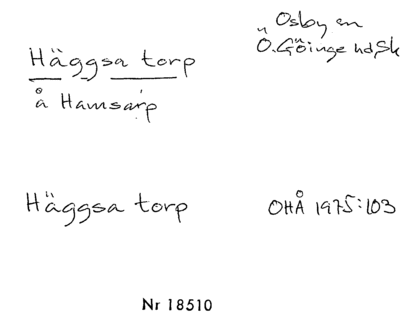 Häggsa torp
å Hamsarp
Osby sn
Ö. Göinge hd, Sk
Häggsa torp
OHÅ 1975:103
Nr 18510